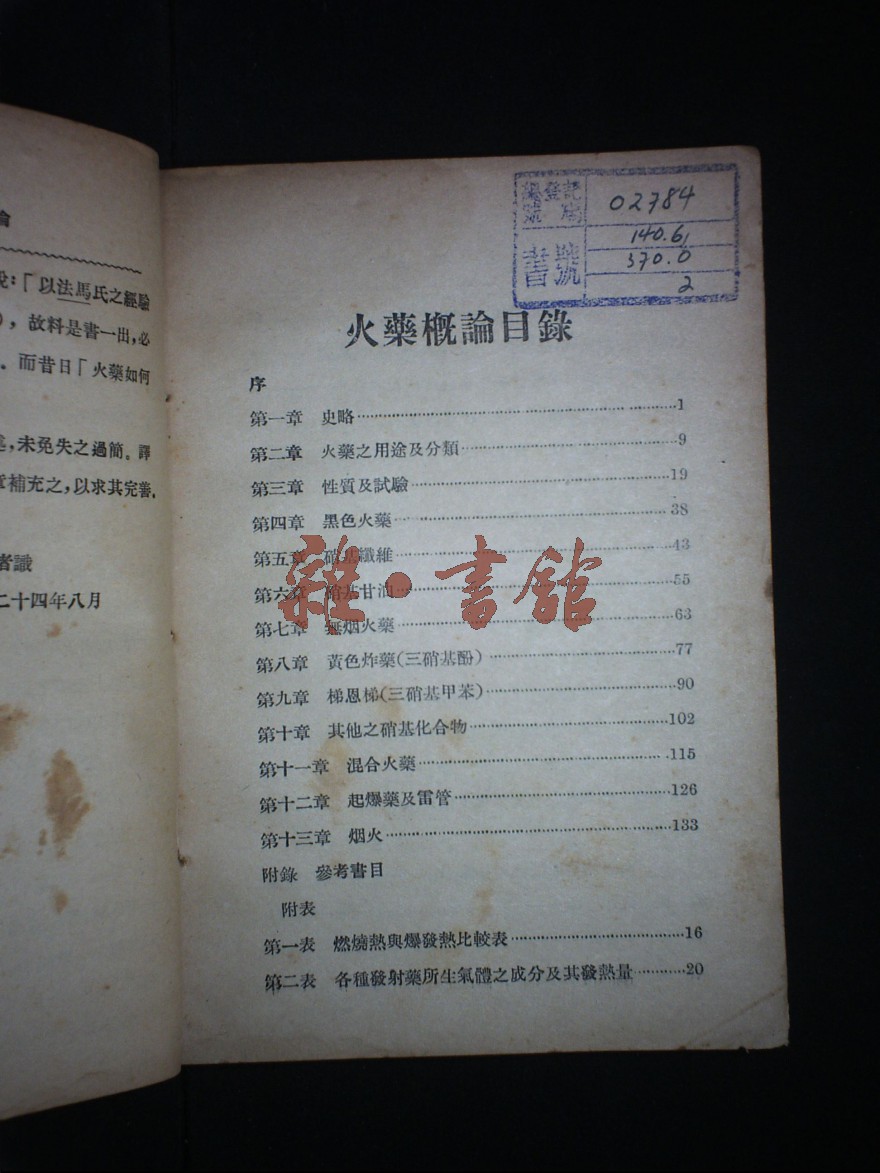 說:「以法馬氏之經驗
),故料是書一出,必
.而昔日「火藥如何
,未免失之過簡。譯
章補充之,以求其完善.
者識
二十四年八月
登記
02784
書號
140.61
370.0
2
火藥概論目錄
序
第一章 史略 1
第二章 火藥之用途及分類 9
第三章 性質及試驗 19
第四章 黑色火藥 38
第五章 硝基纖維 43
第六章 硝基甘油 55
第七章 無烟火藥 63
第八章 黃色炸藥(三硝基酚) 77
第九章 梯恩梯(三硝基甲苯) 90
第十章 其他之硝基化合物 102
第十一章 混合火藥 115
第十二章 起爆藥及雷管 126
第十三章 烟火 133
附錄 參考書目
附表
第一表 燃燒熱與爆發熱比較表 16
第二表 各種發射藥所生氣體之成分及其發熱量 20
雜·書館